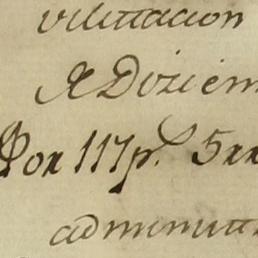 vilittacion
& Diziem
Por 117p.^s 5rr
adminitt